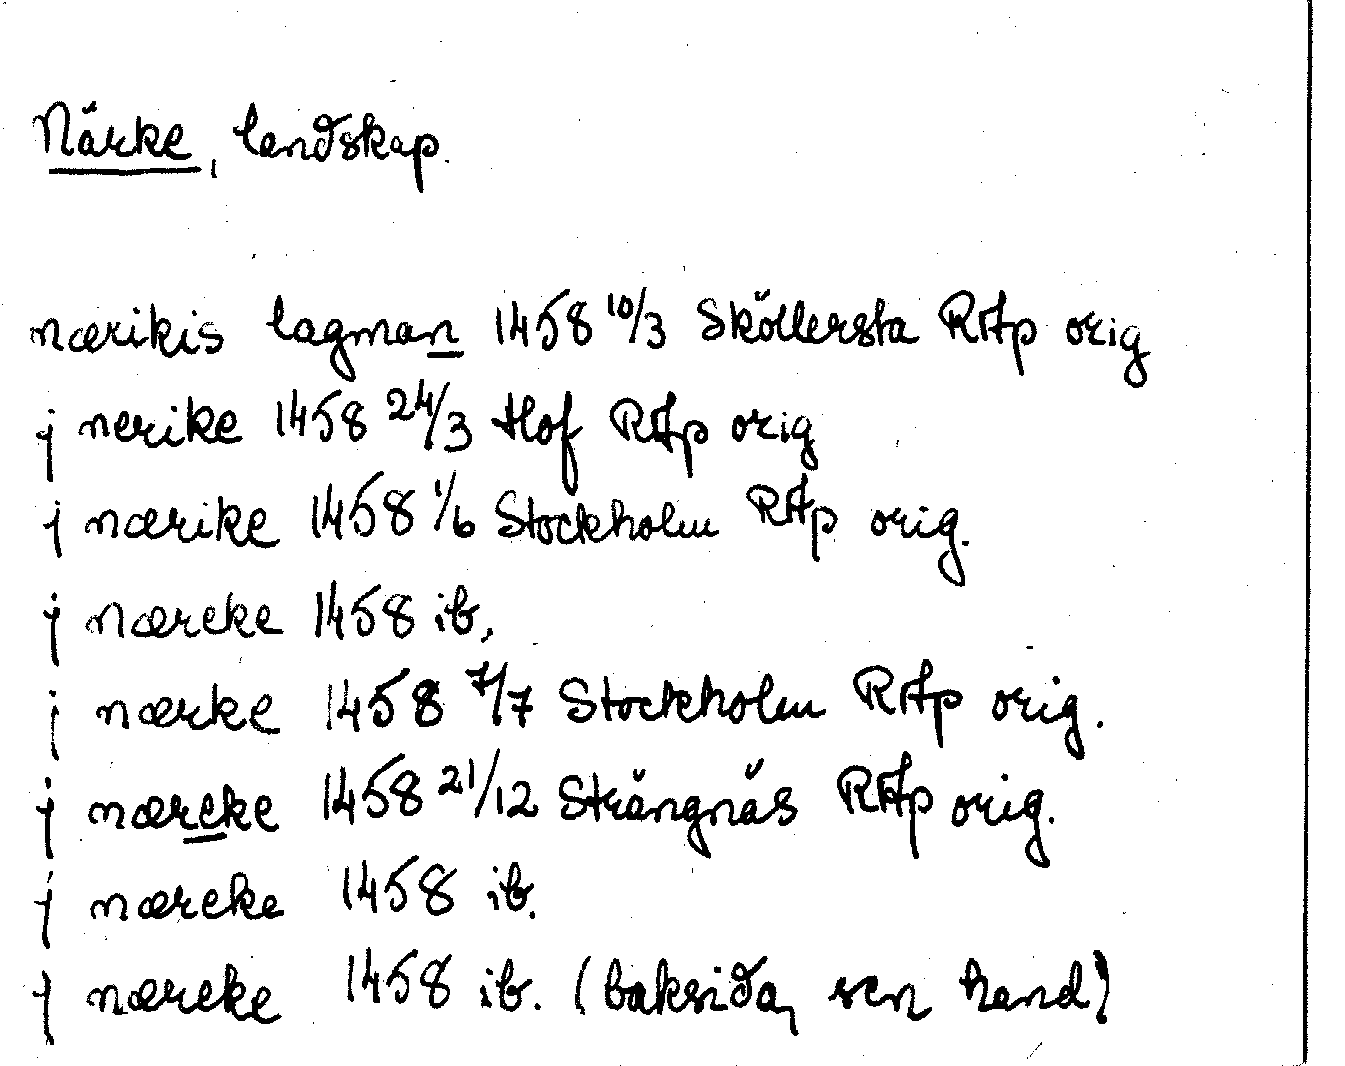 Närke, landskap.
nærikis lagman 1458 10/3 Sköllersta RAp orig
j nerike 1458 24/3 Hof RAp orig
j nærike 1458 1/6 Stockholm RAp orig.
j næreke 1458 ib.
j nærke 1458 7/7 Stockholm RAp orig.
j næreke 1458 21/12 Strängnäs RAp orig.
j næreke 1458 ib.
j næreke 1458 ib. (baksida, sen hand)